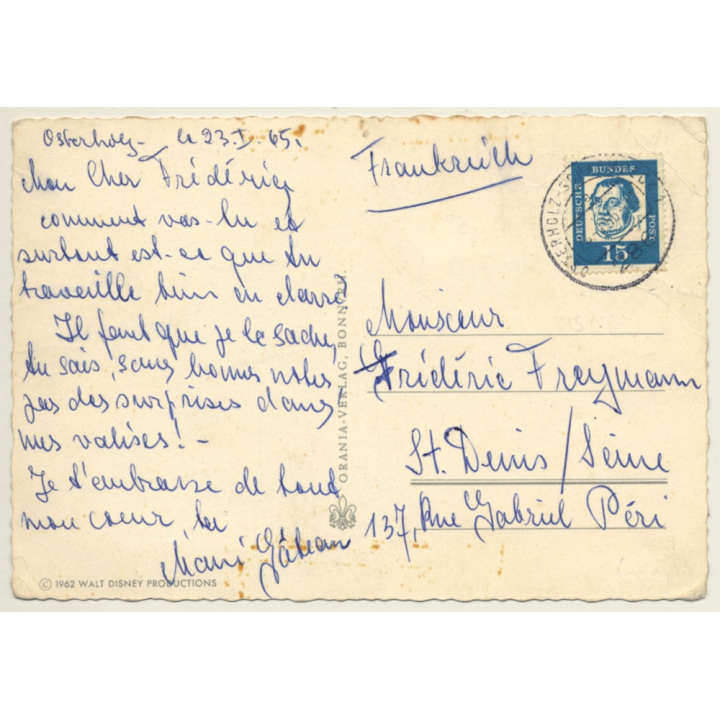 Osterholz - le 23.I.65.
Mon Cher Frédéric,
comment vas-tu et
surtout est-ce que tu
travaille bien en classe
Il faut que je le sache,
tu sais, sans bonnes notes
pas des surprises dans
mes valises! -
Je t'embrasse de tout
mon coeur ta
Mami Gâteau
© 1962 WALT DISNEY PRODUCTIONS
ORANIA-VERLAG, BONN
Frankreich
DEUTSCHE BUNDES POST
15
OSTERHOLZ-SC
Monsieur
Frédéric Freymann
St. Denis/Seine
137, Rue Gabriel Péri